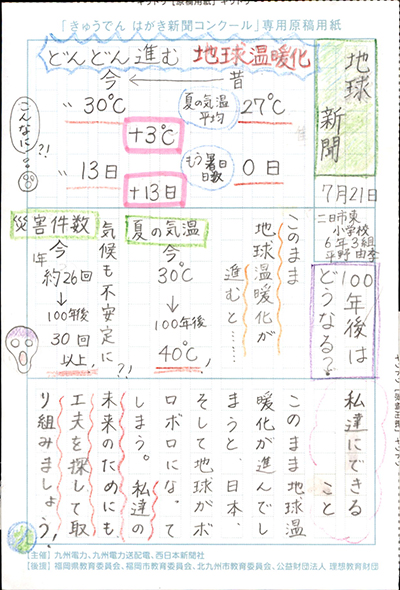 「きゅうでん はがき新聞コンクール」専用原稿用紙
地球
新聞
7月21日
二日市東
小学校
6年3組
平野 由季
100年後は
どうなる?
どんどん進む 地球温暖化
今 ← 昔
〃 30℃
夏の気温
平均
27℃
+3℃
〃 13日
もう暑日
日数
0日
+13日
こんなに!?
このまま
地球温暖化が
進むと……
夏の気温
今。
30℃
↓
100年後
40℃,
気候も不安定に?!
災害件数
今
1年
約26回
↓
100年後
30回
以上,
私達にできる
こと
このまま地球温
暖化が進んでし
まうと、日本、
そして地球がボ
ロボロになって
しまう。私達の
未来のためにも
工夫を探して取
り組みましょう!
【主催】九州電力、九州電力送配電、西日本新聞社
【後援】福岡県教育委員会、福岡市教育委員会、北九州市教育委員会、公益財団法人 理想教育財団